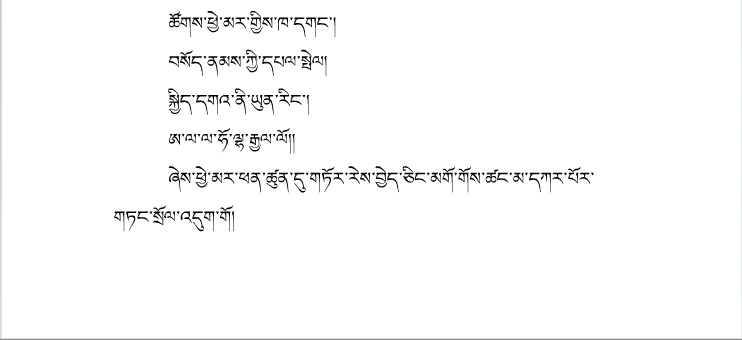 ཚོགས་ཕྱེ་མར་གྱིས་ཁ་དགང་།
བསོད་ནམས་ཀྱི་དཔལ་སྤེལ།
སྐྱིད་དགའ་ནི་ཡུན་རིང་།
ཨ་ལ་ལ་ཧོ་ལྷ་རྒྱལ་ལོ།།
ཞེས་ཕྱེ་མར་ཕན་ཚུན་དུ་གཏོར་རེས་བྱེད་ཅིང་མགོ་གོས་ཚང་མ་དཀར་པོར་
གཏང་སྲོལ་འདུག་གོ།